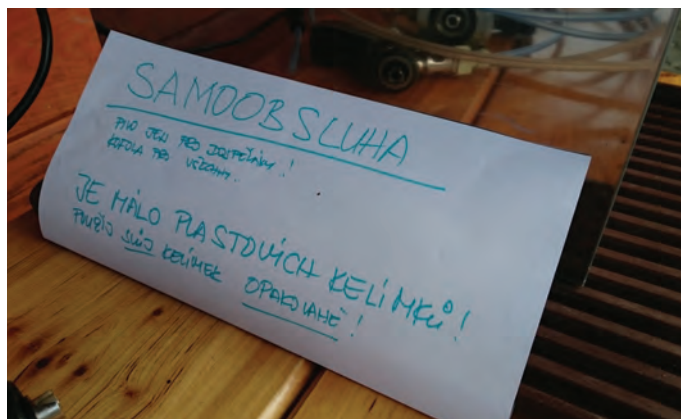 SAMOOBSLUHA
PIVO JEN PRO DOSPĚLÁKY!
KOFOLA PRO VŠECHNY.
JE MÁLO PLASTOVÝCH KELÍMKŮ!
POUŽIJ SVŮJ KELÍMEK OPAKOVANĚ!